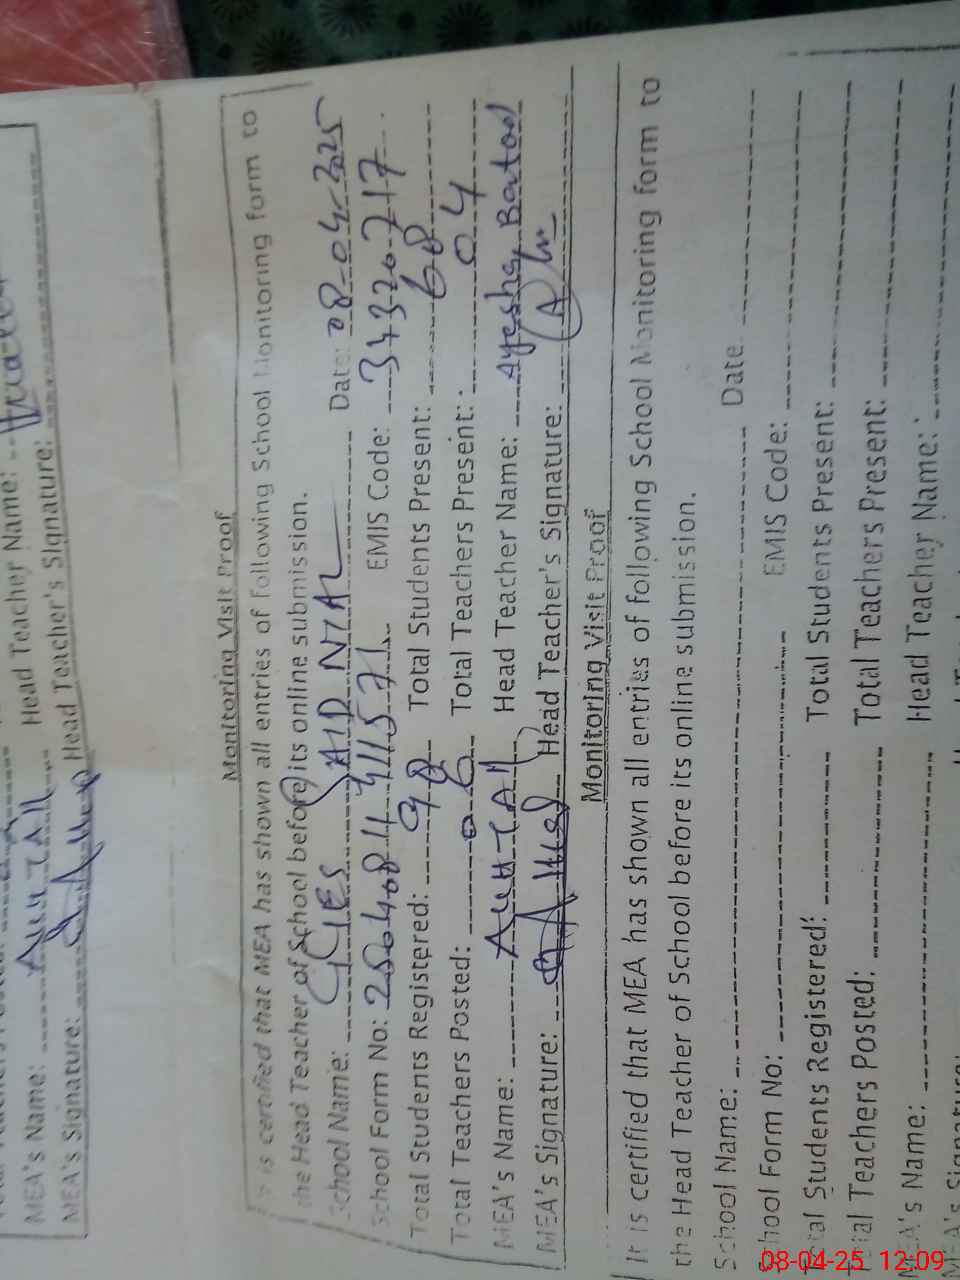 Head Teacher Name:
MEA's Name: AUHTAII
MEA's Signature: Head Teacher's Signature:
Monitoring Visit Proof
It is certified that MEA has shown all entries of Following School Monitoring form to
the Head Teacher of School before its online submission.
School Name: GGES Date: 08-04-2025
School Form No: EMIS Code: 34320717
Total Students Registered: 98 Total Students Present: 68
Total Teachers Posted: 06 Total Teachers Present: 04
MEA's Name: Head Teacher Name: Ayesha Batool
MEA's Signature: Head Teacher's Signature:
Monitoring Visit Proof
It is certified that MEA has shown all entries of following School Monitoring form to
the Head Teacher of School before its online submission.
School Name: Date
School Form No: EMIS Code:
Total Students Registered: Total Students Present:
Total Teachers Posted: Total Teachers Present:
MEA's Name: Head Teacher Name:
08-04-25 12:09